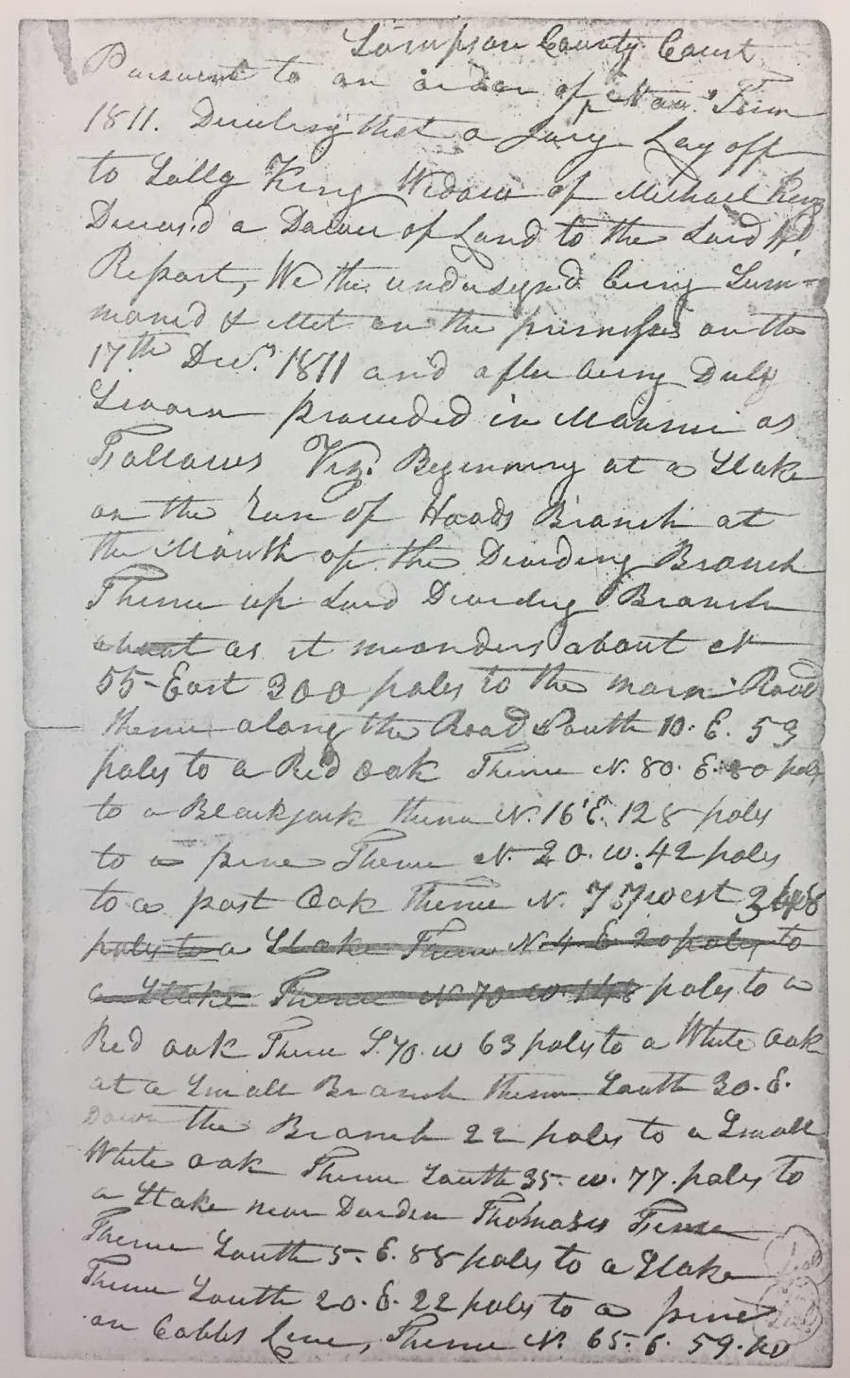 Sampson County Court
Pursuant to an order of Nov.r Term
1811. Directing that a Jury Lay off
to Sally King Widow of Michael King
Deceas'd a Dower of Land to the Said
Report, We the undersign'd being Sum-
mon'd & Met on the premises on the
17th Decr. 1811 and after being Duly
Sworn proceeded in Manner as
Follows Viz. Beginning at a Stake
on the Run of Hoods Branch at
the Mouth of the Deviding Branch
Thence up Said Deviding Branch
about as it meanders about N
55-East 300 poles to the main Road
thence along the Road South 10. E. 53
poles to a Red oak Thence N. 80. E. 80 poles
to a Blackjack thence N. 16 E. 128 poles
to a pine Thence N. 20. w. 42 poles
to a post Oak Thence N. 77 west
poles to a Stake Thence N. 4. E 20 poles to
a Stake Thence N 70 w. 148 poles to a
Red oak Thence S. 70. w 63 poles to a White Oak
at a Small Branch thence South 30. E.
Down the Branch 22 poles to a Small
White oak Thence South 35- w. 77. poles to
a Stake near Darden Thomases Fense
Thence South 5- E. 88 poles to a Stake
Thence South 20. E. 22 poles to a pine
on Cobbs Line, Thence N. 65. E. 59. po